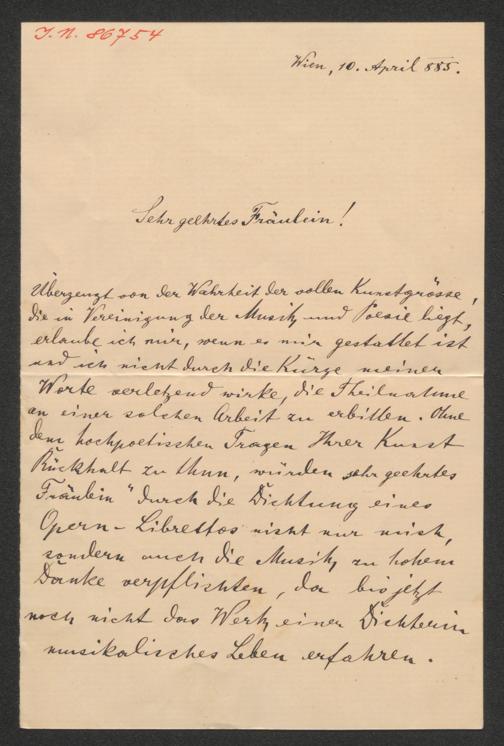 J.N. 86754
Wien, 10. April 885.
Sehr geehrtes Fräulein!
Überzeugt von der Wahrheit der vollen Kunstgrösse,
die in Vereinigung der Musik und Poesie liegt,
erlaube ich mir, wenn es mir gestattet ist
und ich nicht durch die Kürze meiner
Worte verletzend wirke, die Theilnahme
an einer solchen Arbeit zu erbitten. Ohne
dem hochpoetischen Tragen Ihrer Kunst
Rückhalt zu thun, würden sehr geehrtes
Fräulein" durch die Dichtung eines
Opern-Librettos nicht nur mich,
sondern auch die Musik, zu hohem
Danke verpflichten, da bis jetzt
noch nicht das Werk einer Dichterin
musikalisches Leben erfahren.